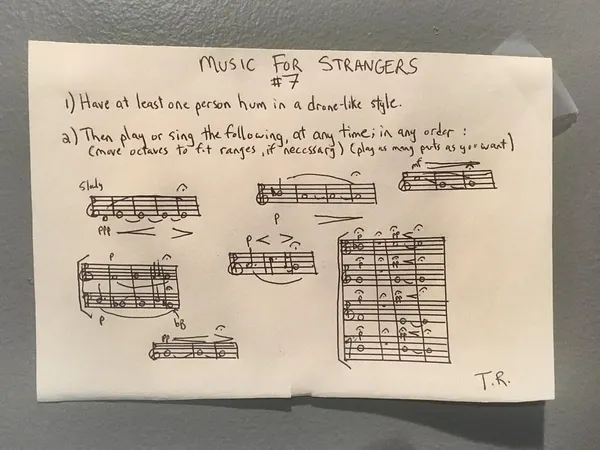 MUSIC FOR STRANGERS
#7
1) Have at least one person hum in a drone-like style.
2) Then play or sing the following, at any time, in any order :
(move octaves to fit ranges, if necessary) (play as many parts as you want)
mf
Slowly
p
ppp
p
p
p
pp
p
pp
T.R.